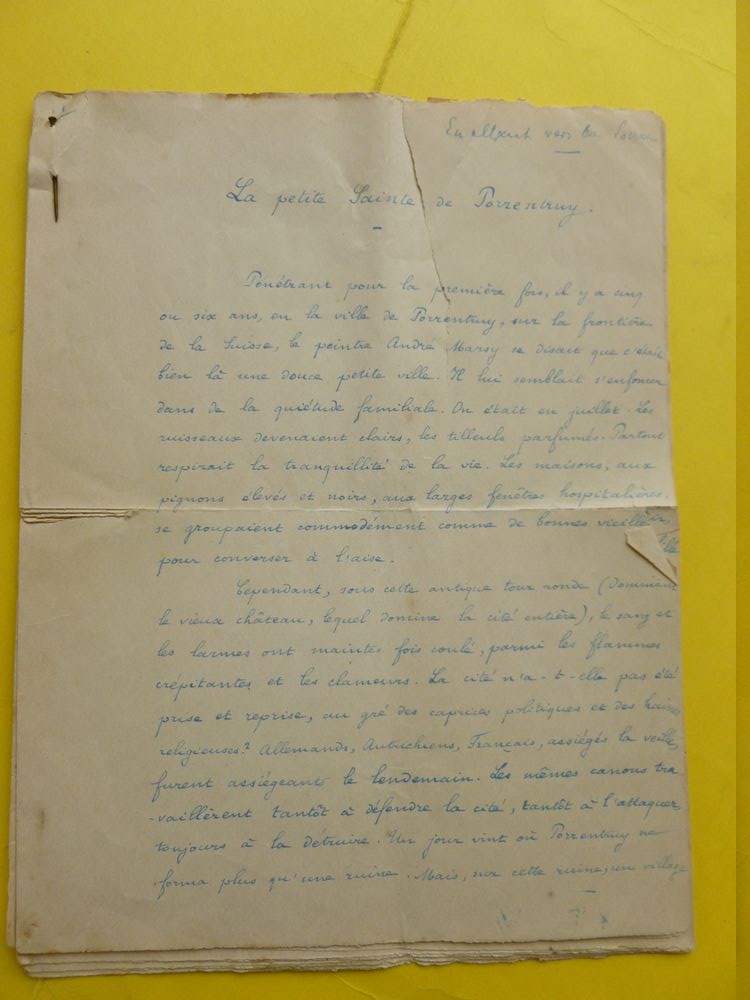 En allant vers la
La petite Sainte de Porrentruy.
Pénétrant pour la première fois, il y a cinq
ou six ans, en la ville de Porrentruy, sur la frontière
de la Suisse, le peintre André Marsy se disait que c'était
bien là une douce petite ville. Il lui semblait s'enfoncer
dans de la quiétude familiale. On était en juillet. Les
ruisseaux devenaient clairs, les tilleuls parfumés. Partout
respirait la tranquillité de la vie. Les maisons, aux
pignons élevés et noirs, aux larges fenêtres hospitalières,
se groupaient commodément comme de bonnes
pour converser à l'aise.
Cependant, sous cette antique tour ronde (dominant
le vieux château, lequel domine la cité entière), le sang et
les larmes ont maintes fois coulé, parmi les flammes
crépitantes et les clameurs. La cité n'a-t-elle pas été
prise et reprise, au gré des caprices politiques et des haines
religieuses? Allemands, Autrichiens, Français, assiégés la veille,
furent assiégeants le lendemain. Les mêmes canons tra
-vaillèrent tantôt à défendre la cité, tantôt à l'attaquer,
toujours à la détruire. Un jour vint où Porrentruy ne
forma plus qu'une ruine. Mais, sur cette ruine, un village